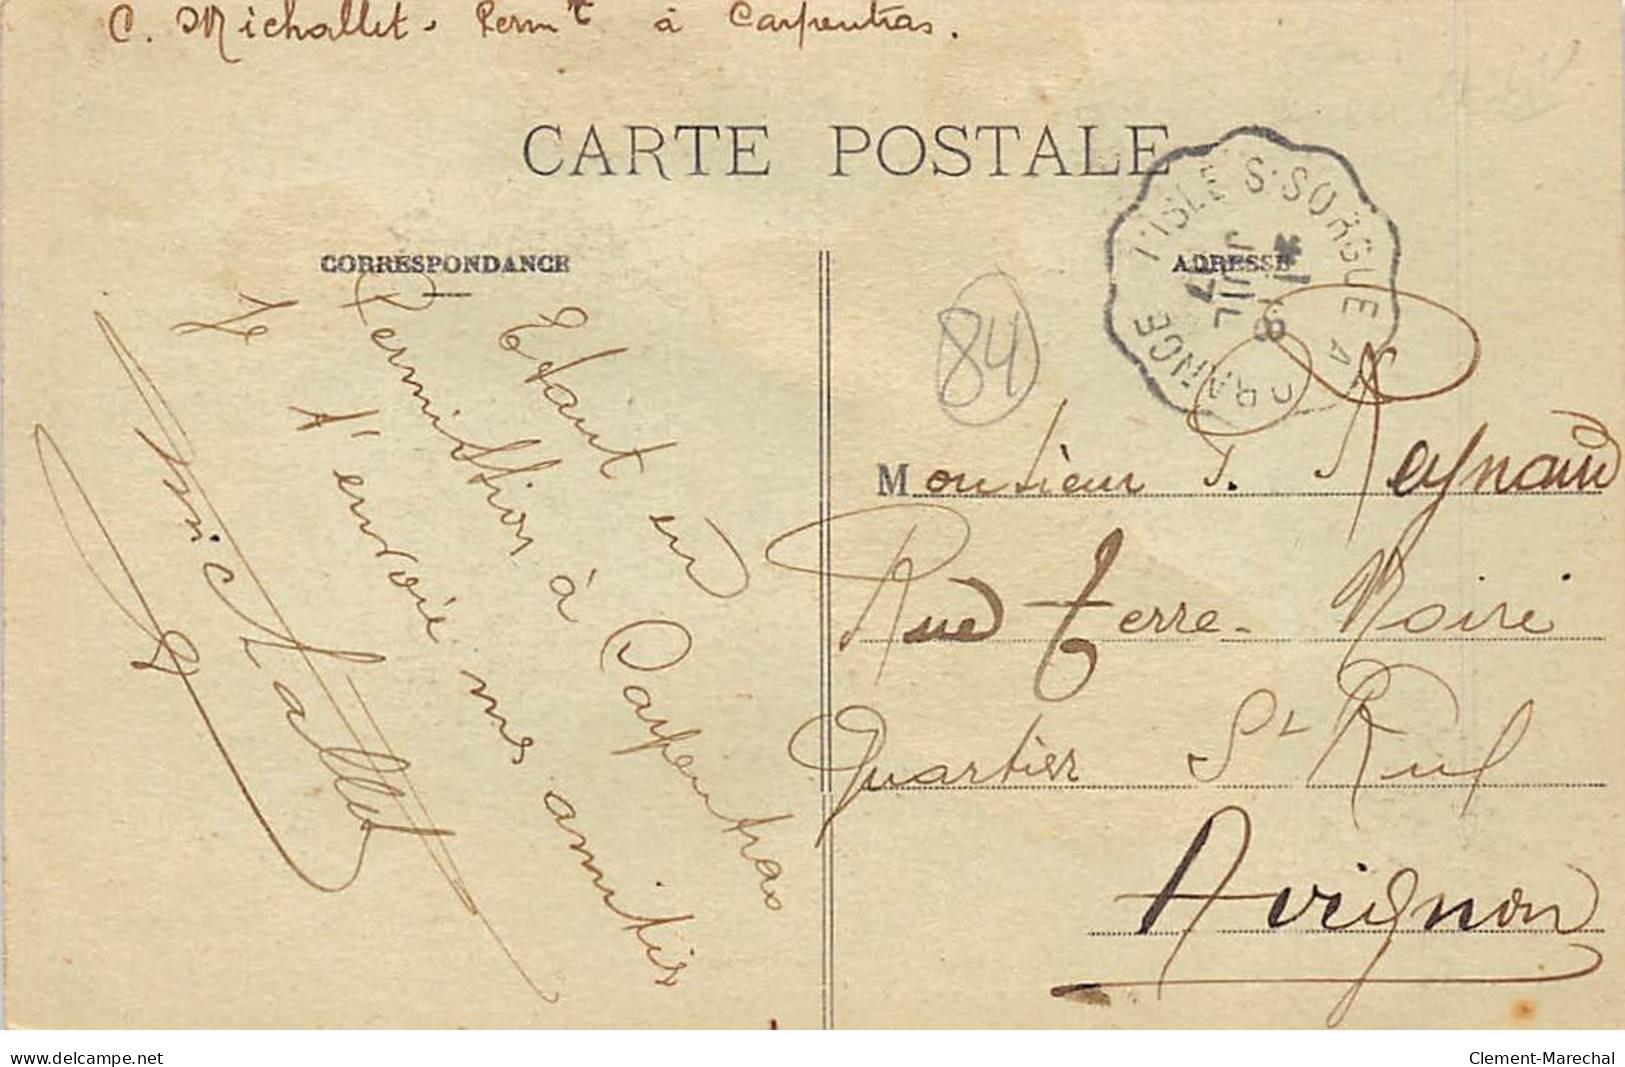 C. Michallet. Permt à Carpentras.
CARTE POSTALE
CORRESPONDANCE
ADRESSE
L'ISLE S. SORGUE A ORANGE
18
JUIL
17
84
Etant en
Permission à Carpentras
Je t'envoie mes amitis
Michallet
Monsieur P. Reynaud
Rue terre-Noire
Quartier St Ruf
Avignon
www.delcampe.net
Clement-Marechal